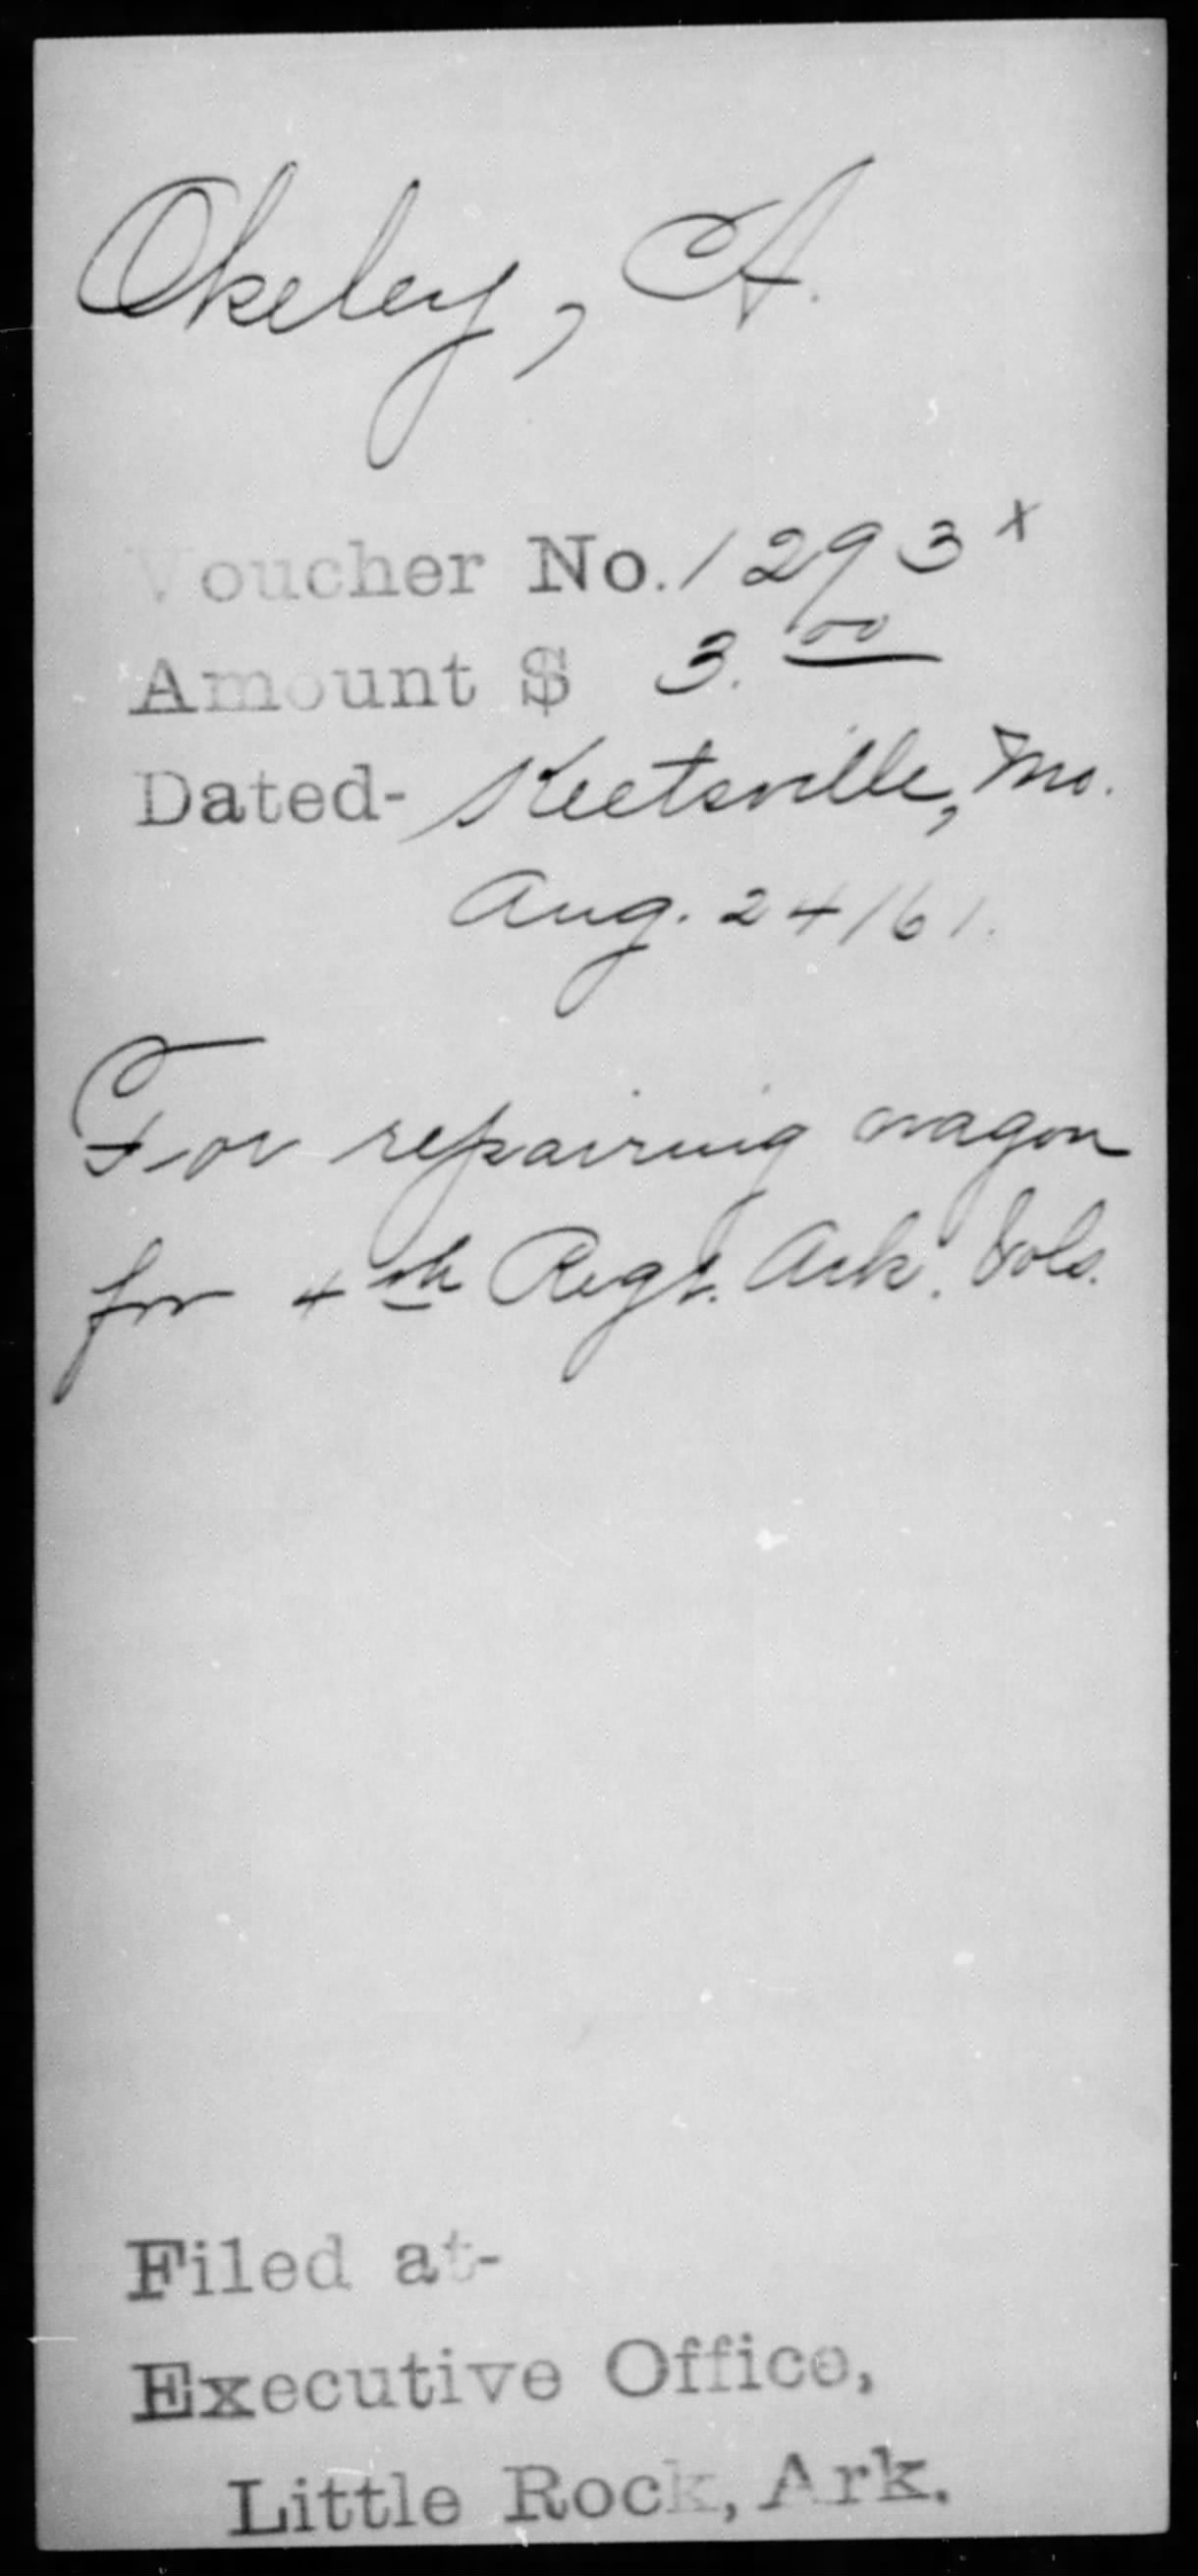 Okeley, A.
Voucher No. 1293 x
Amount $ 3.00
Dated- Keetsville, Mo.
Aug. 24/61.
For repairing wagon
for 4th Regt. Ark. Vols.
Filed at-
Executive Office,
Little Rock, Ark.